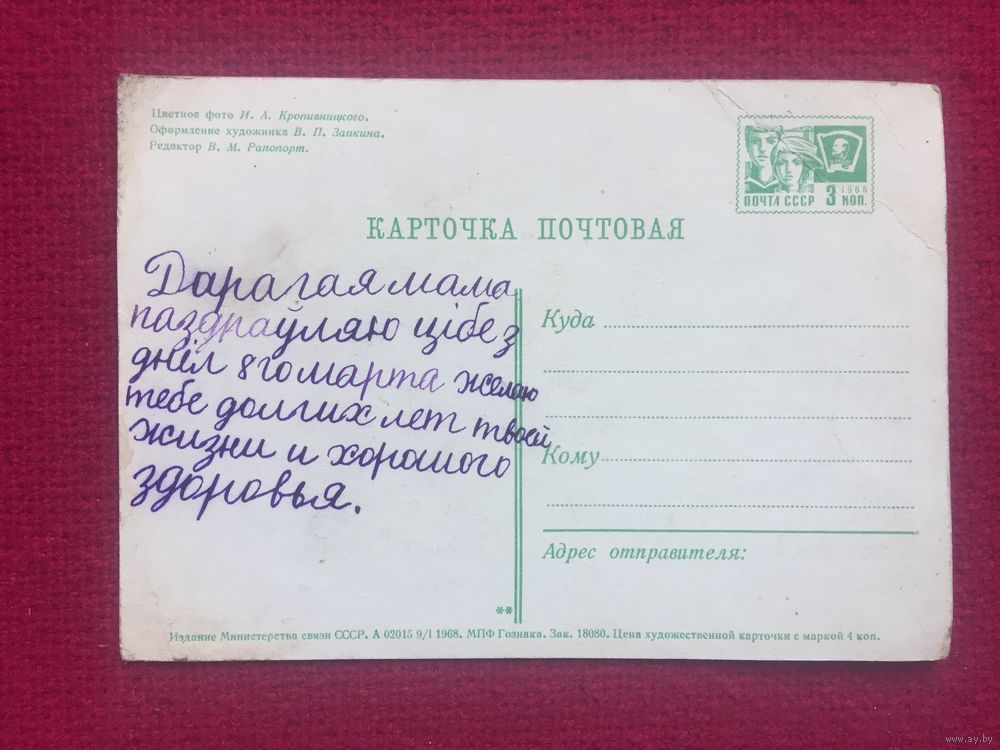 Цветное фото И. А. Кропивницкого.
Оформление художника В. П. Заикина.
Редактор В. М. Рапопорт.
1966
ПОЧТА СССР 3 КОП.
КАРТОЧКА ПОЧТОВАЯ
Дарагая мама
паздраўляю цібе з
дніл 8 го марта желаю
тебе долгих лет твоей
жизни и хорошого
здоровья.
Куда
Кому
Адрес отправителя:
**
Издание Министерства связи СССР. А 02015 9/I 1968. МПФ Гознака. Зак. 18080. Цена художественной карточки с маркой 4 коп.
www.ay.by